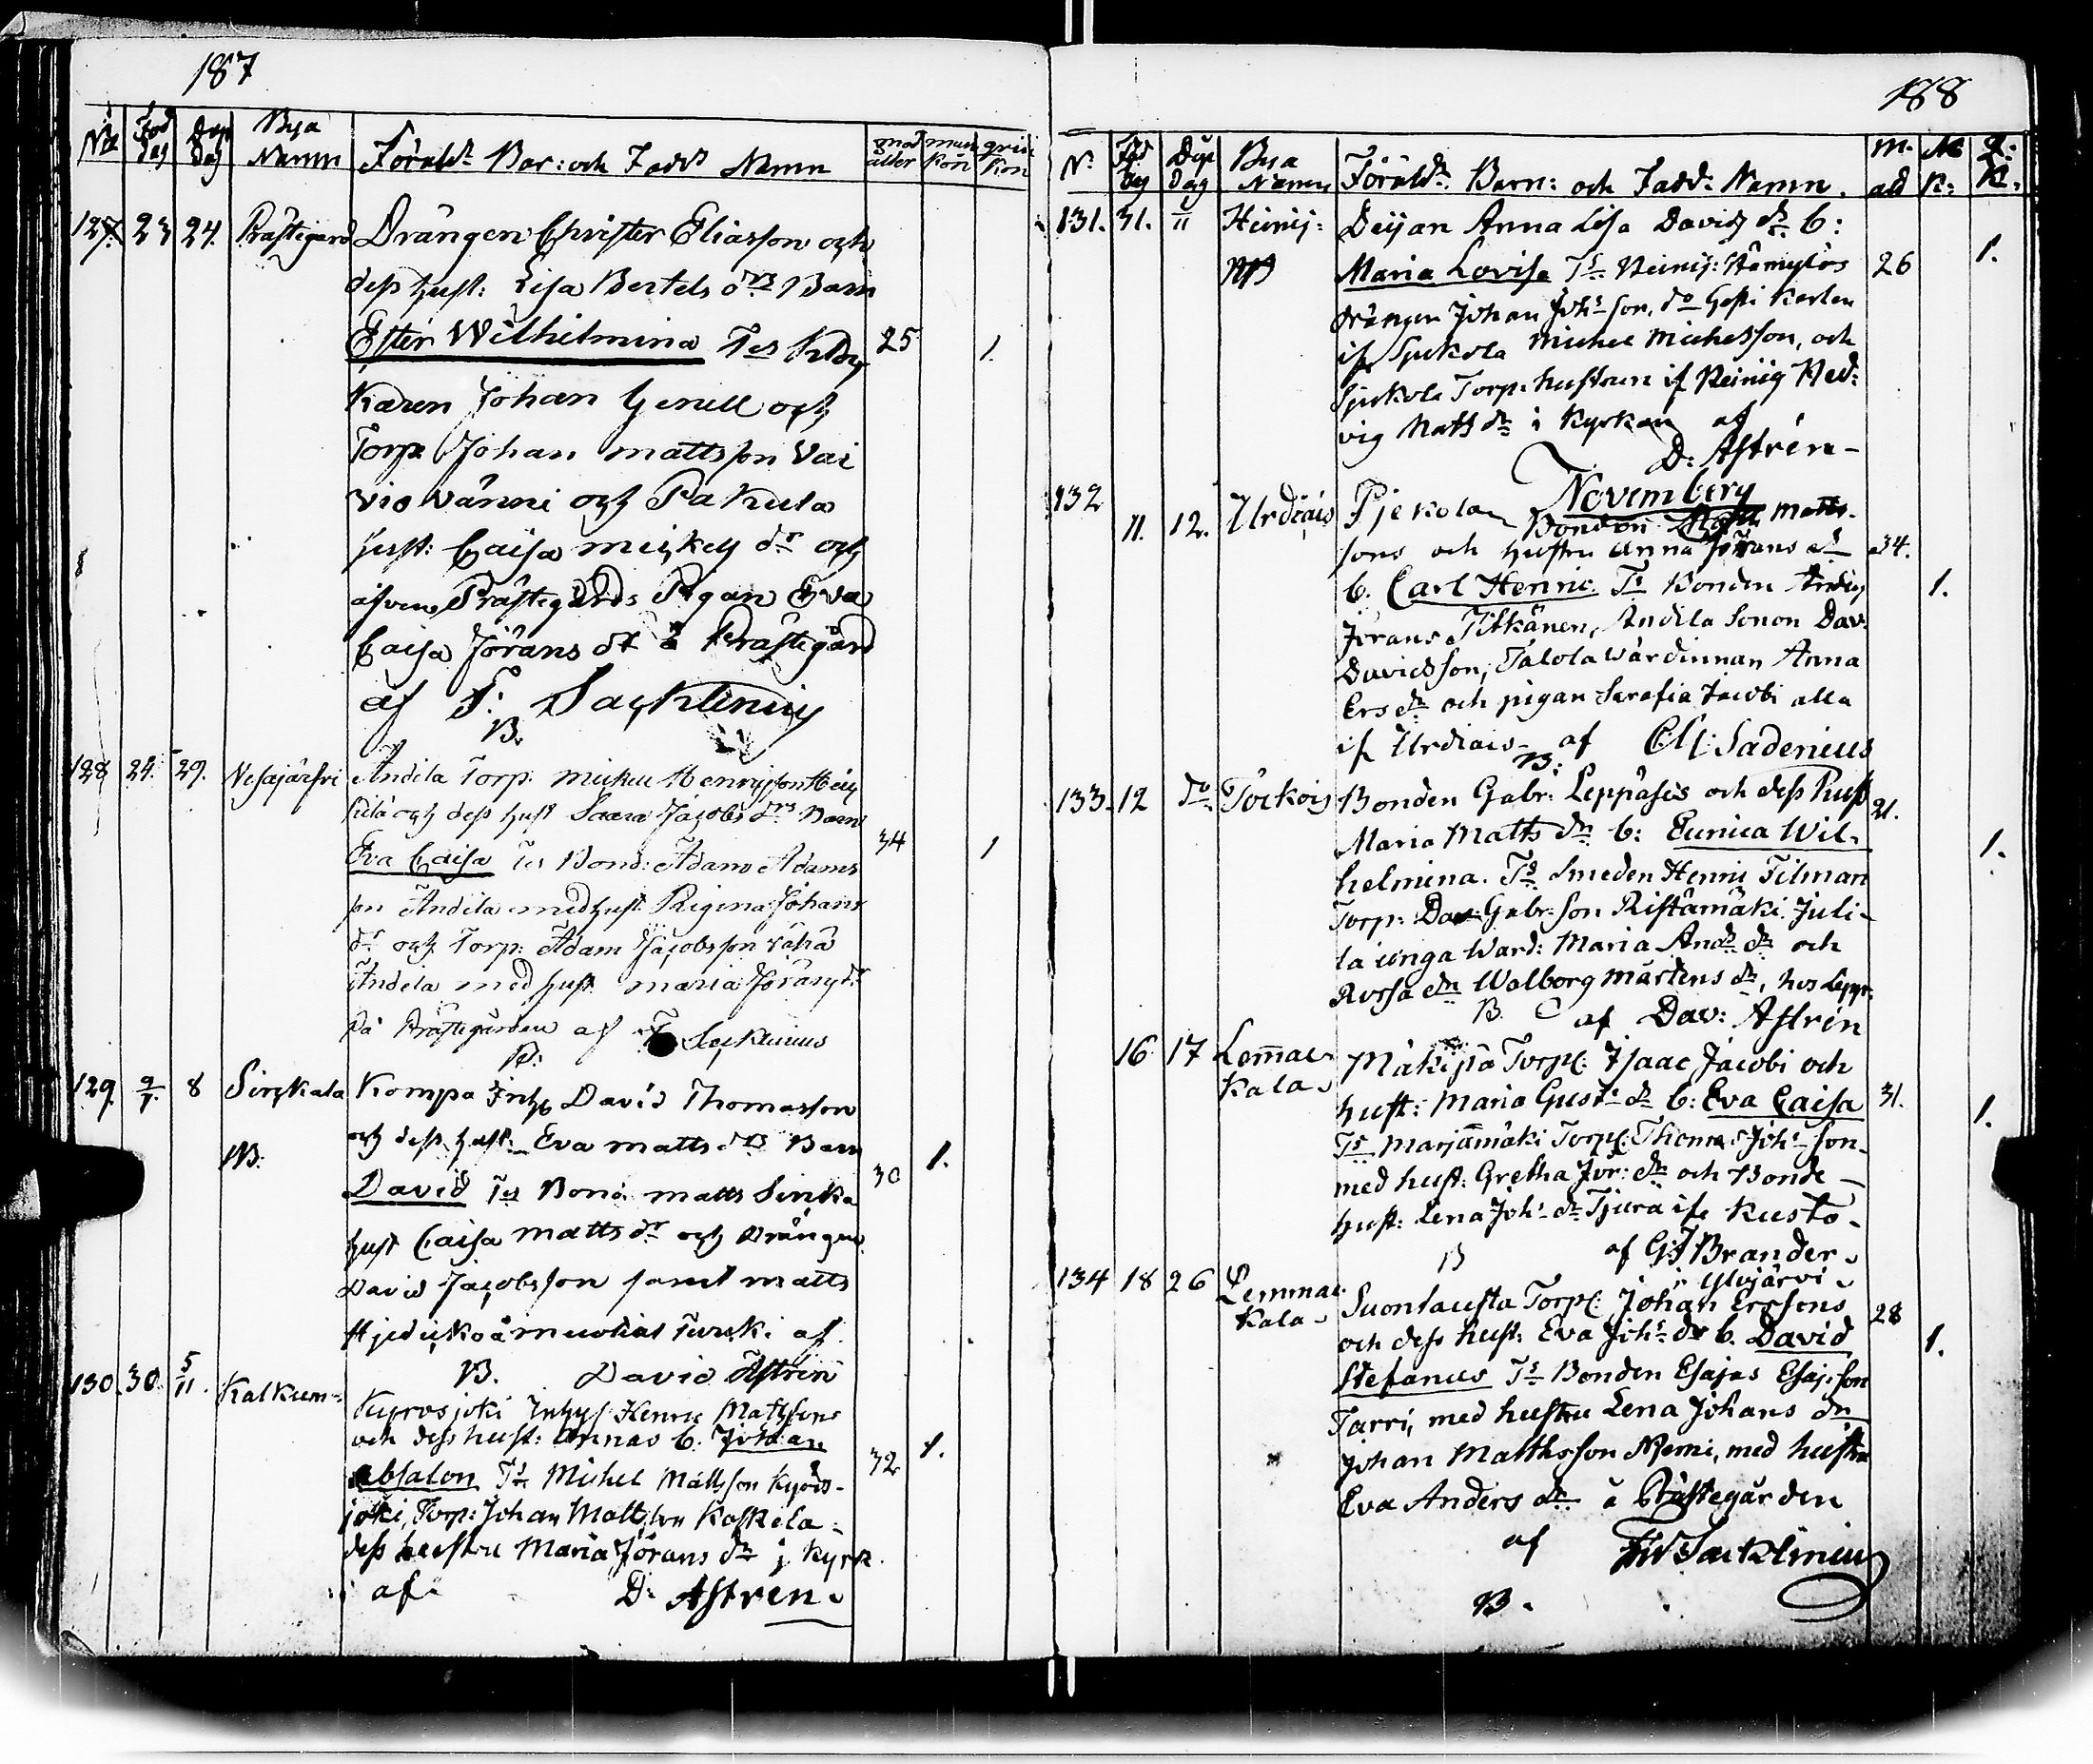 187
No Föd dag Döp dag Bya Namn Föräld: Bar: och Fadd: Namn mod ålder man kön qvin kön
127. 23 24. Prästegård Drängen Christer Eliasson och
dess hust: Lisa Bertels dr: Barn
Ester Wilhelmina Tes 25 1.
Karen Johan och
Torp: Johan Mattsson Vai
vio vänni och Pakula
hust: Caisa Mickels dr och
äfven Prästegårds Pigan Eva
Caisa Jörans dr å Prästegård
af F. Sacklinius
B.
128 24. 29. Vesajärfvi Andila Torp: Mickel Henricsson
och dess hust Saara Jacobs dr: Barn
Eva Caisa Tes Bond: Adam Adams 34 1
son Andila med hust. Regina Johans
dr och Torp: Adam Jacobsson Vähä
Andila med hust. Maria Jörans dr
På Prästegården af F Sacklinius
B:
129. 8 Sirckala Kompa Inhys David Thomasson
NB: och dess hust: Eva Matts dr: Barn 1.
David Tes Bond: Matts Sirka 30
hust Caisa Matts dr och Drängen
David Jacobsson samt Matts
Turcki af
B. David Astrén
130. 30. 5/11. Kalkum= Kyrosjoki Inhys: Henric Matsson
och dess hust: Annas b. Johan 32 1.
Absalon Ts Michel Mattsson Kyrös-
joki, Torp: Johan Mattsson Kaskela =
dess hustru Maria Jörans dr j kyrk.
af D: Astrén.
188
N: Föd dag Döp dag Bya Namn Föräld: Barn: och Fadd: Namn. M. ald M K: Q: K.
131. 31. 11 Heinij: Deijan Anna Lisa Davids dr b:
NB Maria Lovisa Ts Heinij: 26 1.
drängen Johan Johsson, do karlen
if Sjukola Michel Michelsson, och
Sjukola Torp: hustrun if Heinij Hed:
vig Matts dr i Kyrkan af
D: Astrén -
Novembery
132 11. 12. Urdiais Pjekola Bonden Matts-
sons och hustru Anna Jörans dr 34.
b. Carl Henric Ts Bonden 1.
Jörans Pitkänen, Andila Sonen Dav.
Davidsson, Talola Wärdinnan Anna
Ers dr och pigan Serafia Jacobi alla
if Urdiais - af CM: Sadenius
B:
133. 12 do Tockois Bonden Gabr: Leppäses och dess hust 21.
Maria Matts dr b: Eunica Wil- 1.
helmina. Ts Smeden Henric Tilman
Torp: Dav: Gabr: son Ristämäki Juli-
la unga Ward: Maria And: dr och
Rossa drn Walborg Mårtens dr, hos Lepp:
B. af Dav: Astrén
16 17 Lemmac- kala - Mäkipä Torp: Isaac Jacobi och
hust: Maria Gust: dr b: Eva Caisa 31. 1.
Ts Marjamäki Torp: Thomas Joh: son
med hust: Gretha Jor: dr och Bonde -
hust: Lena Joh: dr Tjura ifr Kusto -
B af GJ Brander.
i Ylöjärvi.
134 18 26 Lemmac- kala - Suontausta Torp: Johan Erssons 28
och dess hust: Eva Joh: dr b. David 1.
Stefanus Ts Bonden Esajas Esaj: son
Tarri, med hustru Lena Johans dr
Johan Matthsson Niemi, med hustru
Eva Anders dr å Prästegården
af FW Sacklinius
B.